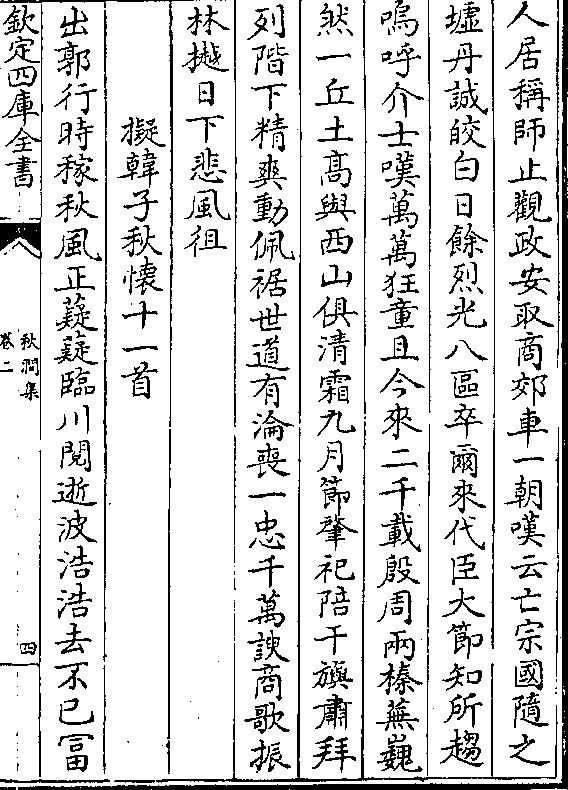 人居稱師止觀政安取商郊車一朝嘆云亡宗國隨之
墟丹誠皎白日餘烈光八區卒爾來代臣大節知所趨
嗚呼介士嘆萬萬狂童且今來二千載殷周兩榛蕪巍
然一丘土髙與西山俱清霜九月節肇祀陪干旟肅拜
列階下精爽動佩裾世道有淪喪一忠千萬諛商歌振
林樾日下悲風徂
擬韓子秋懷十一首
出郭行時稼秋風正薿薿臨川閱逝波浩浩去不已冨
欽定四庫全書
秋澗集
卷二
四